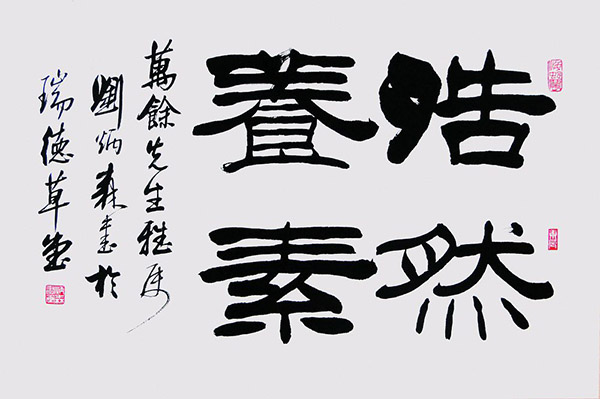 皓然
養素
萬餘先生雅属
劉炳森書於
瑞德草堂